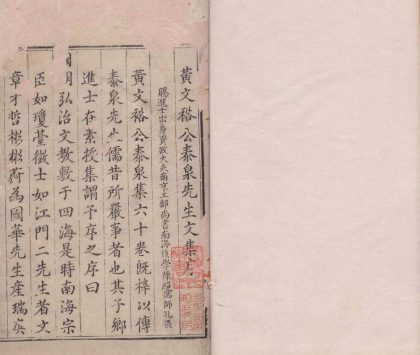 黃文裕公泰泉先生文集序
賜進士出身資政大夫南京工部尚書南海後學陳紹儒師孔撰
黃文裕公泰泉集六十卷既梓以傳
泰泉先生儒昔所嚴事者也其子鄉
進士在素授集謂予序之序曰
明弘治文教敷于四海是時南海宗
臣如瓊臺徵士如江門二先生者文
章才哲彬彬蔚為國華先生產瑞